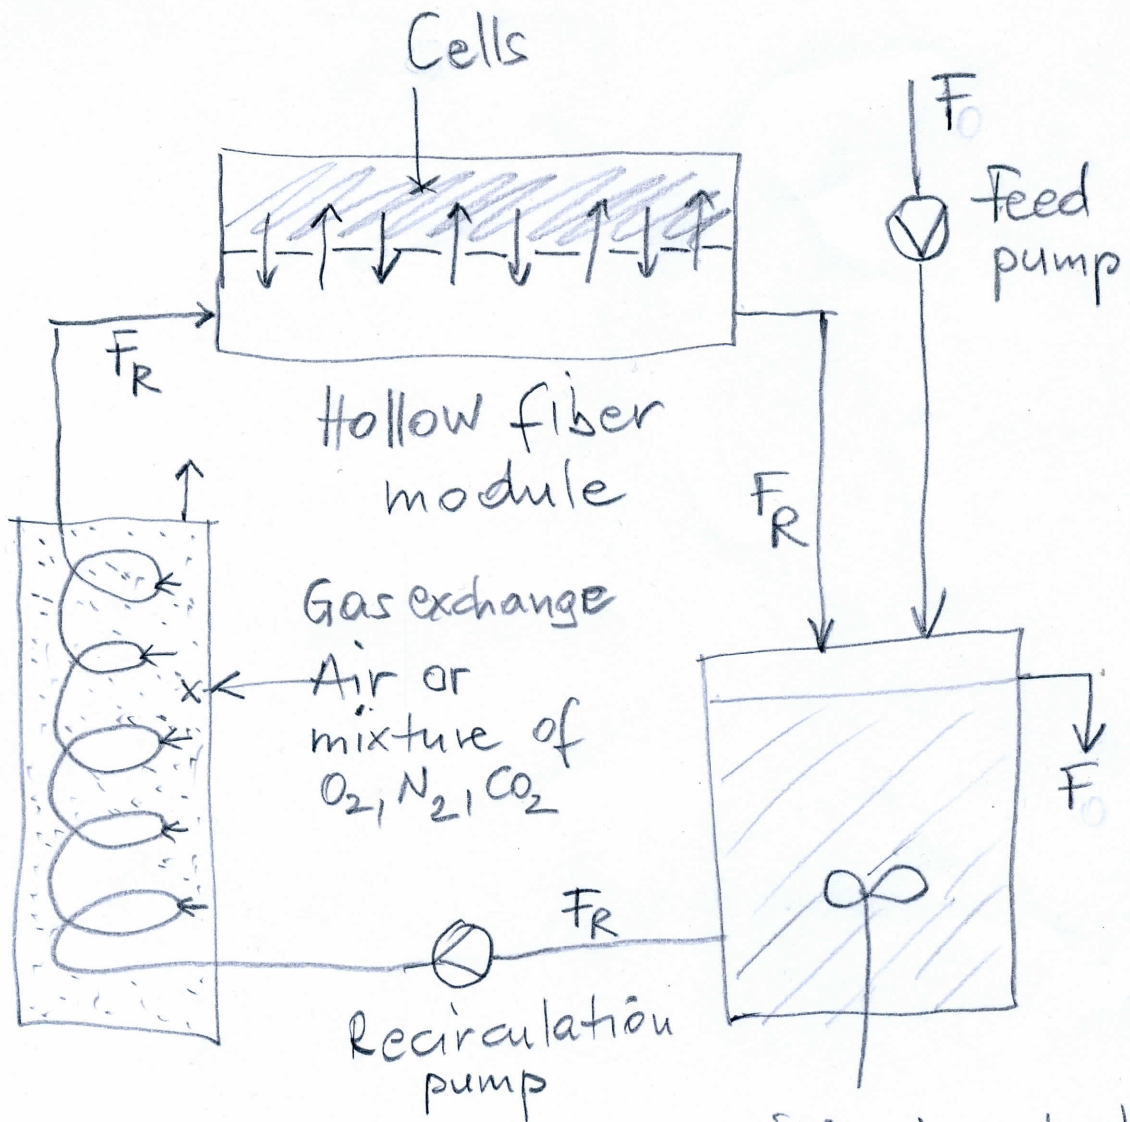 Cells
F₀
Feed
pump
F_R
Hollow fiber
module
F_R
Gas exchange
Air or
mixture of
O₂, N₂, CO₂
F₀
F_R
Recirculation
pump